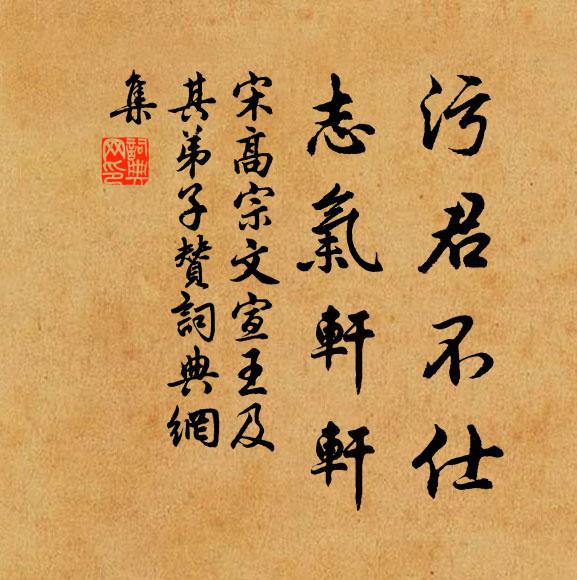 污君不仕
志氣軒軒
宋高宗文宣王及
其弟子贊詞典網
集
詞典
网印